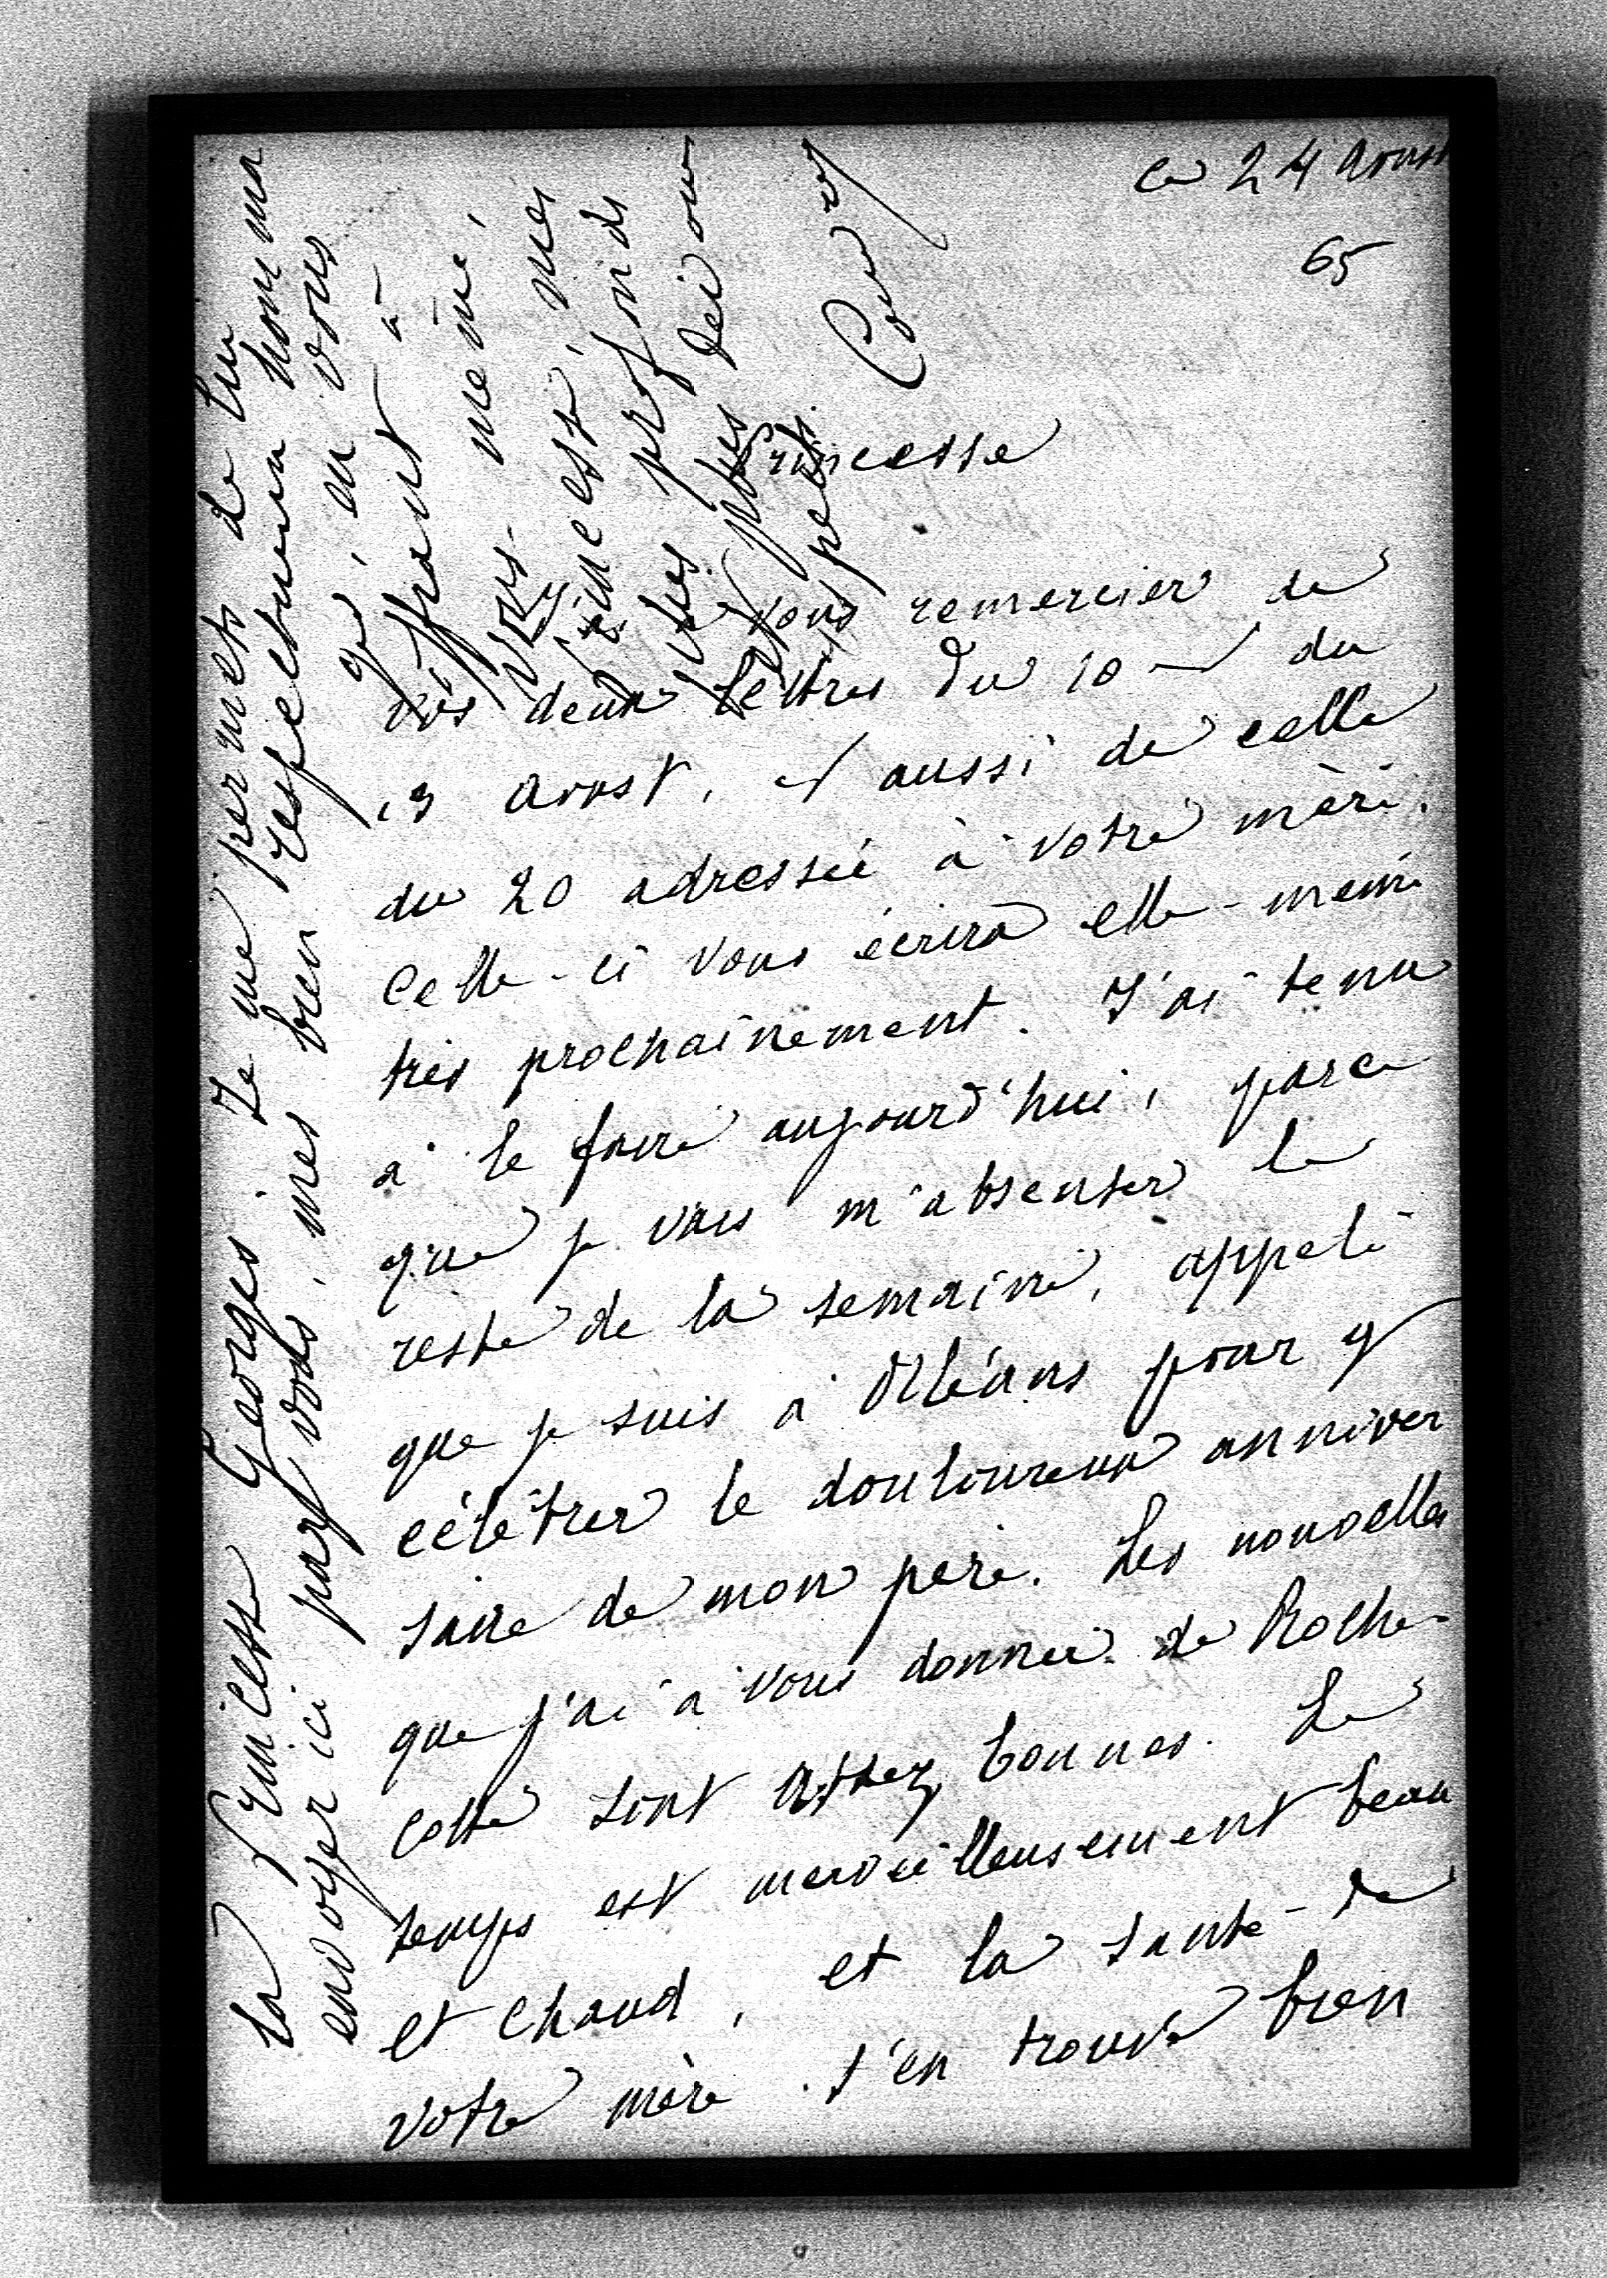 ce 24 Aoust
65
Princesse
vous remercier de
vos deux lettres du 10 et du
13 Aoust, et aussi de celle
du 20 adressée à votre mère.
Celle-ci vous écrira elle-même
très prochainement. J'ai tenu
à le faire aujourd'hui, parce
que je vais m'absenter le
reste de la semaine, appelé
que je suis à Orléans pour y
célébrer le douloureux anniver
saire de mon père. Les nouvelles
que j'ai à vous donner de Roche-
cotte sont assez bonnes. Le
temps est merveilleusement beau
et chaud, et la santé de
votre mère s'en trouve bien
la Princesse Georges. Je me permets de lui
envoyer ici par vous, mes bien respectueux homma
ges, en vous
offrant à
vous même,
Princesse, mes
plus profonds
et plus
respects